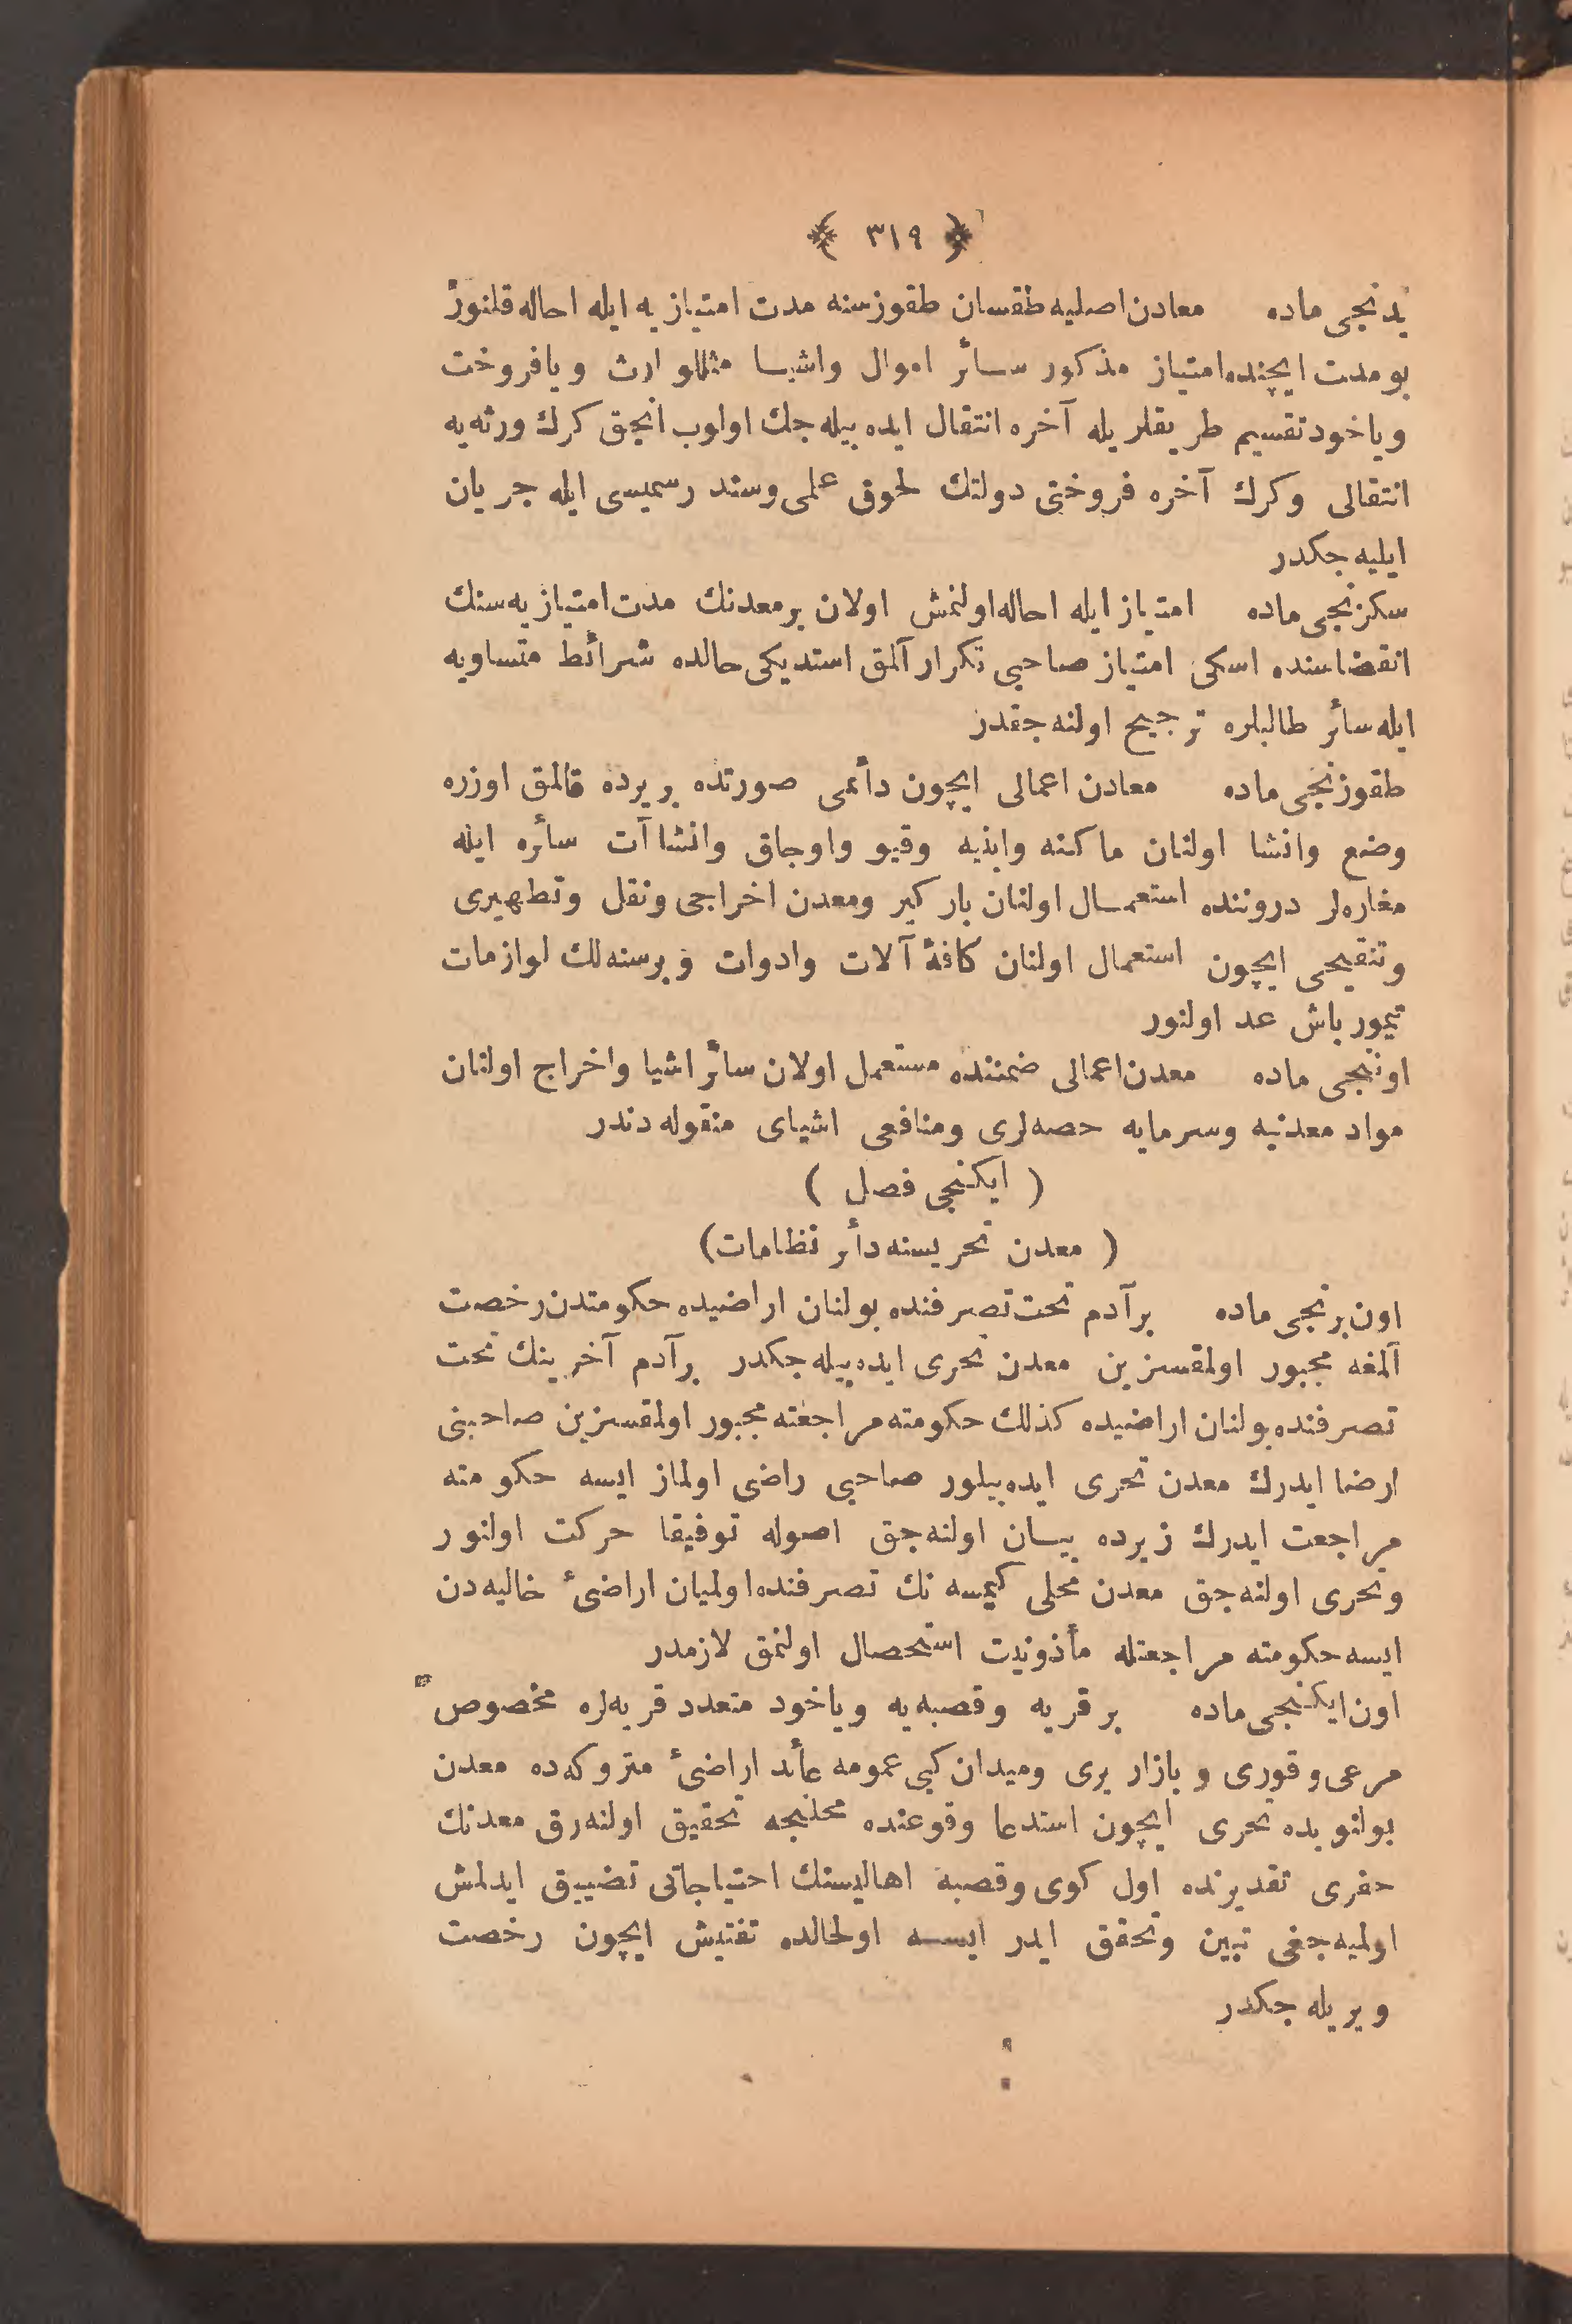 ﴿ ٣١٩ ﴾
یدنجی ماده معادن اصلیه طقسان طقوز سنه مدت امتیازیه ایله احاله قلنور
بو مدت ایچنده امتیاز مذكور سائر اموال واشیا مثللو ارث ویا فروخت
ویاخود تقسیم طریقلریله آخره انتقال ایده بیله جك اولوب انجق كرك ورثه یه
انتقالی وكرك آخره فروختی دولتك لحوق علمی وسند رسمیسی ایله جریان
ایلیه جكدر
سكزنجی ماده امتیاز ایله احاله اولنمش اولان بر معدنك مدت امتیازیه سنك
انقضاسنده اسكی امتیاز صاحبی تكرار آلمق استدیكی حالده شرائط متساویه
ایله سائر طالبلره ترجیح اولنه جقدر
طقوزنجی ماده معادن اعمالی ایچون دائمی صورتده بر یرده قالمق اوزره
وضع وانشا اولنان ماكنه وابنیه وقیو واوجاق وانشاآت سائره ایله
مغاره لر دروننده استعمال اولنان باركیر ومعدن اخراجی ونقل وتطهیری
وتنقیحی ایچون استعمال اولنان كافهٔ آلات وادوات و بر سنه لك لوازمات
تیمور باش عد اولنور
اوننجی ماده معدن اعمالی ضمننده مستعمل اولان سائر اشیا واخراج اولنان
مواد معدنیه وسرمایه حصه لری ومنافعی اشیای منقوله دندر
( ایكنجی فصل )
( معدن تحریسنه دائر نظامات)
اون برنجی ماده بر آدم تحت تصرفنده بولنان اراضیده حكومتدن رخصت
آلمغه مجبور اولمقسزین معدن تحری ایده بیله جكدر بر آدم آخرینك تحت
تصرفنده بولنان اراضیده كذلك حكومته مراجعته مجبور اولمقسزین صاحبنی
ارضا ایدرك معدن تحری ایده بیلور صاحبی راضی اولماز ایسه حكومته
مراجعت ایدرك زیرده بیان اولنه جق اصوله توفیقا حركت اولنور
وتحری اولنه جق معدن محلی كیمسه نك تصرفنده اولمیان اراضیٔ خالیه دن
ایسه حكومته مراجعتله مأذونیت استحصال اولنمق لازمدر
اون ایكنجی ماده بر قریه وقصبه یه ویاخود متعدد قریه لره مخصوص
مرعی وقوری و بازار یری ومیدان كبی عمومه عائد اراضیٔ متروكه ده معدن
بولنوبده تحری ایچون استدعا وقوعنده محلنجه تحقیق اولنه رق معدنك
حفری تقدیرنده اول كوی وقصبه اهالیسنك احتیاجاتی تضییق ایدلمش
اولمیه جغی تبین وتحقق ایدر ایسه اولحالده تفتیش ایچون رخصت
ویریله جكدر